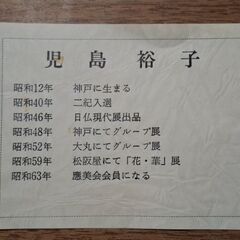 児島裕子
昭和12年 神戸に生まる
昭和40年 二紀入選
昭和46年 日仏現代展出品
昭和48年 神戸にてグループ展
昭和52年 大丸にてグループ展
昭和59年 松阪屋にて「花・華」展
昭和63年 應美会会員になる